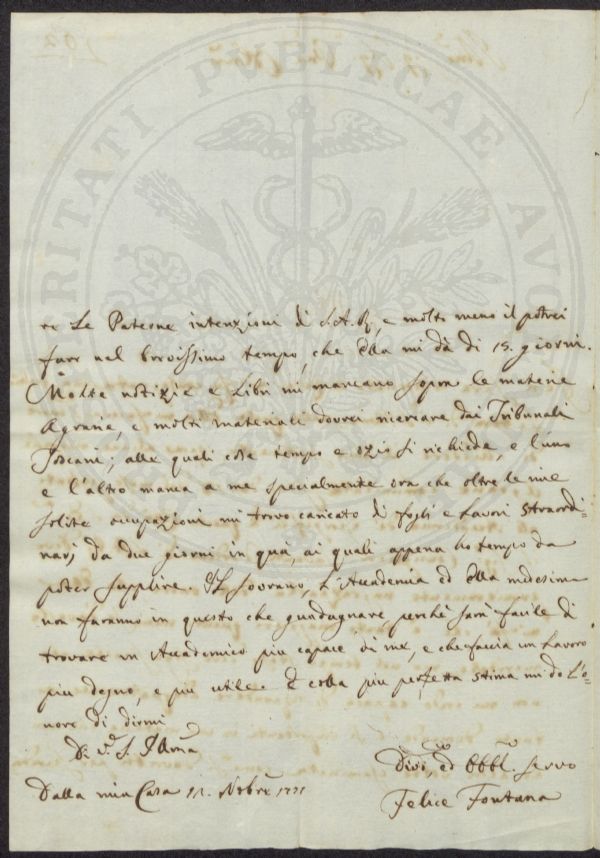 PROSPERITATI PVBLICAE AVGENDAE
re le Paterne intenzioni di S.A.R., e molto meno il potrei
fare nel brevissimo tempo, che Ella mi dà di 15. giorni.
Molte notizie e Libri mi mancano sopra le materie
Agrarie, e molti materiali dovrei ricercare dai Tribunali
Toscani; alle quali cose tempo e ozio si richiede, e l'uno
e l'altro manca a me specialmente ora che oltre le mie
solite occupazioni mi trovo caricato di fogli e Lavori straordi=
narj da due giorni in quà, ai quali appena ho tempo da
poter supplire. Il Sovrano, l'Accademia ed Ella medesima
non faranno in questo che guadagnare, perchè sarà facile di
trovare un Accademico più capace di me, e che faccia un Lavoro
più degno, e più utile. E colla più perfetta stima mi do l'o=
nore di dirmi
Di V.S. Illma
Dalla mia Casa 11. Nobre 1771
Divmo, ed Obblmo servo
Felice Fontana